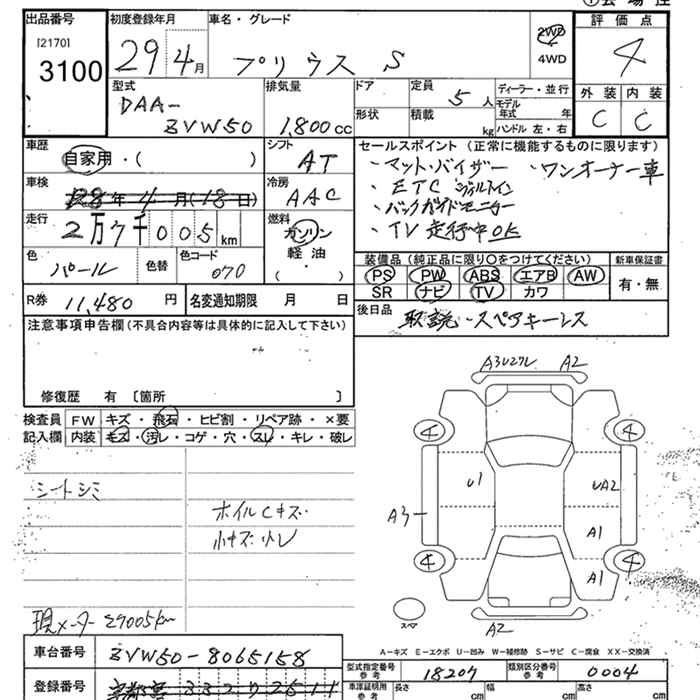 出品番号 初度登録年月 車名・グレード 評価点
[2170]
3100 29 4月 プリウス S 2WD 4WD 4
型式 排気量 ドア 定員 ディーラー・並行 外装 内装
DAA- 5人 モデル年式 年
ZVW50 1,800cc 形状 積載 kg ハンドル 左・右 C C
車歴 シフト セールスポイント (正常に機能するものに限ります)
自家用・( ) AT ・マット・バイザー ・ワンオーナー車
車検 冷房 ・ETC
28年4月(18日) AAC ・バックガイドモニター
走行 燃料 ・TV走行中OK
2万7千005km ガソリン
軽油
( )
色 色替 色コード 装備品 (純正品に限り○をつけてください) 新車保証書
パール 070 PS PW ABS エアB AW 有・無
SR ナビ TV カワ
R券 11,480円 名変通知期限 月 日 後日品 取説・スペアキーレス
注意事項申告欄(不具合内容等は具体的に記入して下さい)
修復歴 有 〔箇所 〕
検査員 FW キズ・飛石・ヒビ割・リペア跡・×要
記入欄 内装 キズ・汚レ・コゲ・穴・スレ・キレ・破レ
A2
4 4
U1 UA2
A3 A1
4 4
A1
スペア
A2
シートシミ
ホイルCキズ
小キズ小レ
現メーター27005km
A-キズ E-エクボ U-凹み W-補修跡 S-サビ C-腐食 XX-交換済
車台番号 ZVW50-8065158
型式指定番号参考 18207 類別区分番号参考 0004
登録番号
車庫証明用参考 長さ cm 幅 cm 高さ cm